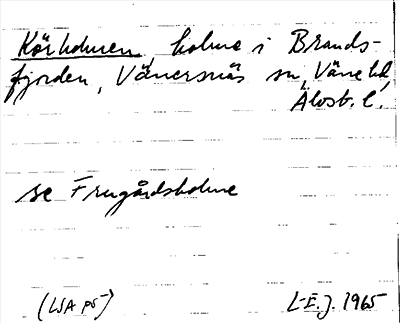 Körholmen, holme i Brands-
fjorden, Vänersnäs sn, Väne hd,
Älvsb. l.
se Frugårdsholme
(LSA P5) L-E.J. 1965